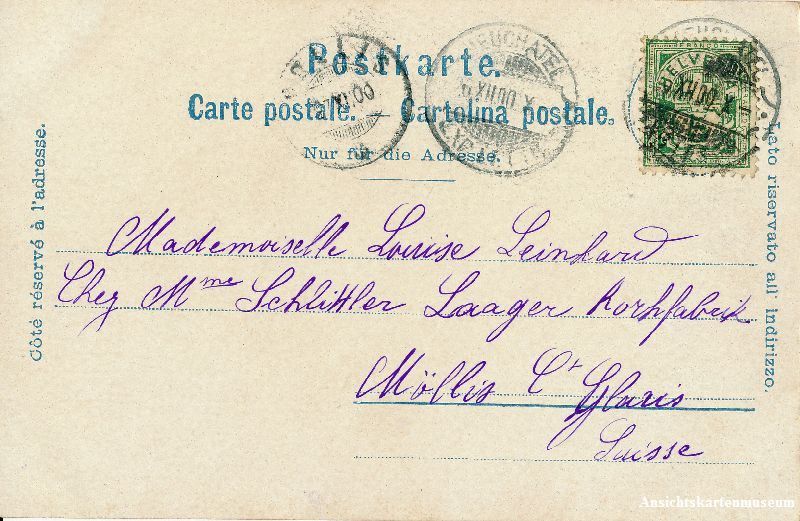 Postkarte.
Carte postale. — Cartolina postale.
Nur für die Adresse.
Côté réservé à l'adresse.
Lato riservato all' indirizzo.
FRANCO
NEUCHATEL
Mademoiselle Louise Leinhard
Chez Mme Schlittler Laager Korkfabrik
Möllis Ct Glaris
Suisse
Ansichtskartenmuseum